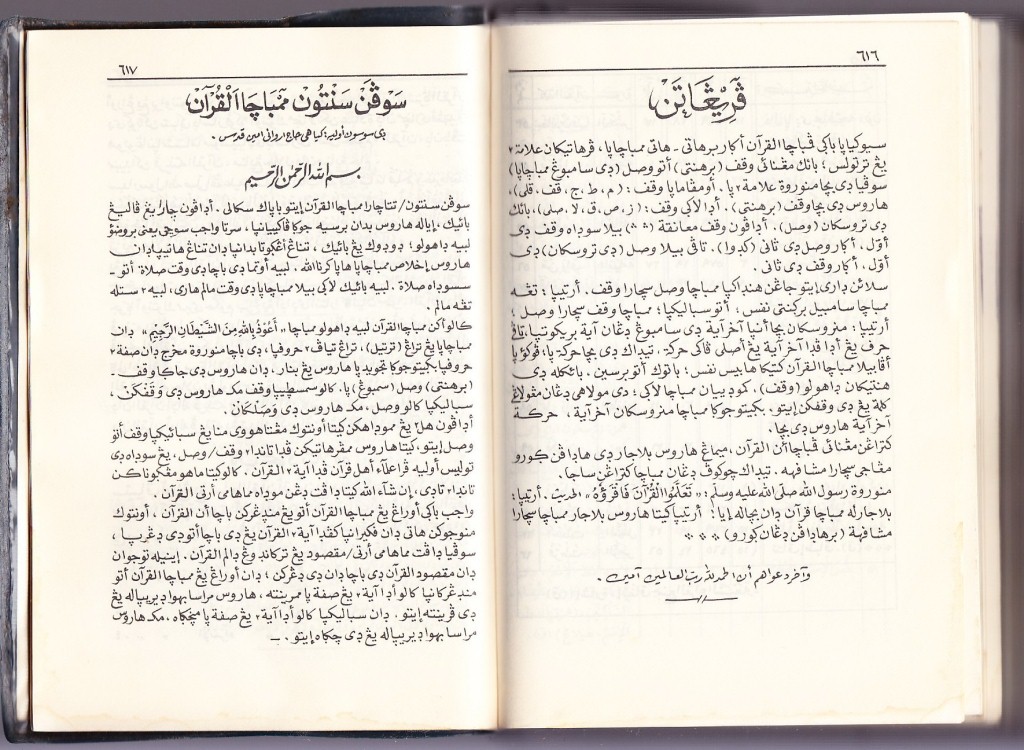 ٦١٦
ڤريڠاتن
سبوکيا ڤاباکي ڤمباچا القرآن أکار برهاتي - هاتي ممباچاڽا، ڤرهاتيکان علامة ٢
يڠ ترتوليس؛ بائک مڠنائي وقف (برهنتي) أتو وصل (دي سامبوڠ ممباچاڽا)
سوڤيا دي بچا منوروة علامة ٢ ڽا. أومڤاماڽا وقف: (م، ط، ج، قف، قلى)،
هاروس دي بچا وقف (برهنتي). أدا لاکي وقف: (ز، ص، ق، لا، صلى)، بائک
دي تروسکان (وصل). أداڤون وقف معانقة (؞ ؞) بيلا سوداه وقف دي
أوّل، أکار وصل دي ثاني (کدوا). تاڤي بيلا وصل (دي تروسکان) دي
أوّل، أکار وقف دي ثاني.
سلائن داري إيتو جاڠن هنداکيا ممباچا وصل سچارا وقف. أرتيڽا: تڠه
ممباچا سامبيل برکنتي نفس؛ أتو سباليکيا: ممباچا وقف سچارا وصل؛
أرتيڽا: منروسکان بچاأنيا آخر آية دي سامبوڠ دڠان آية بريکوتيا، تاڤي
حرف يڠ أدا ڤدا آخر آية يڠ أصلي ڤاکي حرکة. تيداک دي بچا حرکة ڽا، ڤوکوءڽا
أڤابيلا ممباچا القرآن کتيکا هابيس نفس؛ باتوک أتو برسين. بائکله دي
هنتيکان داهولو (وقف)، کموديان ممباچا لاکي؛ دي مولاهي دڠان مڠولاڠي
کلمة يڠ دي وقفکن إيتو. بکيتو جوکا ممباچا منروسکان آخر آية، حرکة
آخر آية هاروس دي بچا.
کتراڠن مڠنائي ڤمباچاأن القرآن، ميماڠ هاروس بلاجار دي هاداڤن کورو
مڠاجي سچارا مشافهه. تيداک چوکوڤ دڠان ممباچا کتراڠن ساجا.
منوروة رسول الله صلى الله عليه وسلم: « تَعَلَّمُوا الْقُرْآنَ فَاقْرَؤُهُ » الحديث. أرتيڽا:
بلاجارله ممباچا قرآن دان بچاله إيا! أرتيڽا کيتا هاروس بلاجار ممباچا سچارا
مشافهة (برهاداڤن دڠان کورو) ؞ ؞ ؞
وآخر دعواهم أن الحمد لله رب العالمين آمين.
٦١٧
سوڤن سنتون ممباچا القرآن
دي سوسون أوليه: کياهي حاج ارواني امين قدس.
بسم الله الرحمن الرحيم
سوڤن سنتون / تتاچارا ممباچا القرآن إيتو باڽاک سکالي. أداڤون چارا يڠ ڤاليڠ
بائيک، إياله هاروس بدان برسيه جوکا ڤاکييانيا، سرتا واجب سوچي يعني بروضؤ
لبيه داهولو؛ دودوک يڠ بائيک، تناڠ أڠکوتا بدانيا دان تناڠ هاتييا. دان
هاروس إخلاص ممباچاڽا هاڽا کرنا الله. لبيه أوتما دي باچا دي وقت صلاة أتو -
سسوداه صلاة. لبيه بائيک لاکي بيلا ممباچاڽا دي وقت مالم هاري، لبيه ٢ ستله
تڠه مالم.
کالو أکن ممباچا القرآن لبيه داهولو ممباچا « أَعُوذُ بِاللهِ مِنَ الشَّيْطَانِ الرَّجِيْمِ » دان
ممباچاڽا يڠ تراڠ (ترتيل)، تراڠ تياڤ ٢ حروفيا، دي باچا منوروة مخرج دان صفة ٢
حروفيا بکيتو جوکا تجويد ڽا يڠ بنار. دان هاروس دي جاکا وقف -
(برهنتي) وصل (سمبوڠ) ڽا. کالو مستييا وقف مک هاروس دي وَقَفْکَنْ،
سباليکيا کالو وصل، مک هاروس دي وَصَلْکَانْ.
أداڤون هل ٢ يڠ ممودهکن کيتا أونتوک مڠتاهوي منا يڠ سبائيکيا وقف أتو
وصل إيتو، کيتا هاروس ممڤرهاتيکن ڤدا تاندا ٢ وقف / وصل، يڠ سوداه دي
توليس أوليه ڤرا علماء أهل قرآن ڤدا آية ٢ القرآن. کالو کيتا ماهو مڠکوناکن
تاندا ٢ تادي، إن شاء الله کيتا داڤت دڠن موداه مماهمي أرتي القرآن.
واجب باکي أوراڠ يڠ ممباچا القرآن أتو يڠ مندڠرکن باچاأن القرآن، أونتوک
منوجوکن هاتي دان فکيرانيا کڤدا آية ٢ القرآن يڠ دي باچا أتو دي دڠريا،
سوڤيا داڤت ماهمي أرتي / مقصود يڠ ترکاندوڠ دالم القرآن. إينيله توجوان
دان مقصود القرآن دي باچا دان دي دڠرکن؛ دان أوراڠ يڠ ممباچا القرآن أتو
مندڠرکانيا کالو أدا آية ٢ يڠ صفة ڽا ممرينته، هاروس مراسا بهوا ديريياله يڠ
دي ڤرينته إيتو. دان سباليکيا کالو أدا آية ٢ يڠ صفة ڽا منچکاه، مک هاروس
مراسا بهوا ديريياله يڠ دي چکاه إيتو. -